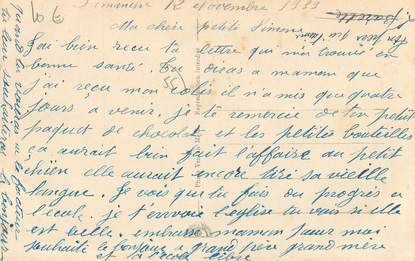 10 €
Dimanche 12 Novembre 1933
Ma chère petite Simone
J'ai bien reçu ta lettre qui m'a trouvé en
bonne santé. Tu diras a maman que
j'ai reçu mon colis il n'a mis que quatre
jours a venir. je te remercie de ton petit
paquet de chocolat et les petites bouteilles
ça aurait bien fait l'affaire au petit
chien elle aurait encore tiré sa vieille
langue. Je vois que tu fais du progrès a
l'école. je t'envoie l'église tu vois si elle
est belle. embrasse maman pour moi
souhaite le bonjour a grand père grand mère
et a l'école libre
quand tu verras
tu leur souhaiteras le bonjour